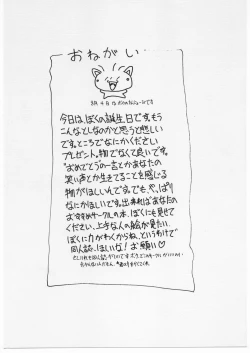 おねがい
今日は、ぼくの誕生日です。もう
こんなとしなのかと思うと悲しい
です。ところでなにかください
プレゼント。物でなくて良いです。
"おめでとう"の一言とかあなたの
笑い声とか生きてることを感じる
物がほしいんです。でも、やっぱり
なにかほしいです。出来ればあなたの
おすすめサークルの本、ぼくにも見せて
ください。上手な人の絵が見たい。
ぼくに力がわくからね、というわけで
同人誌、ほしいな! お願い♡